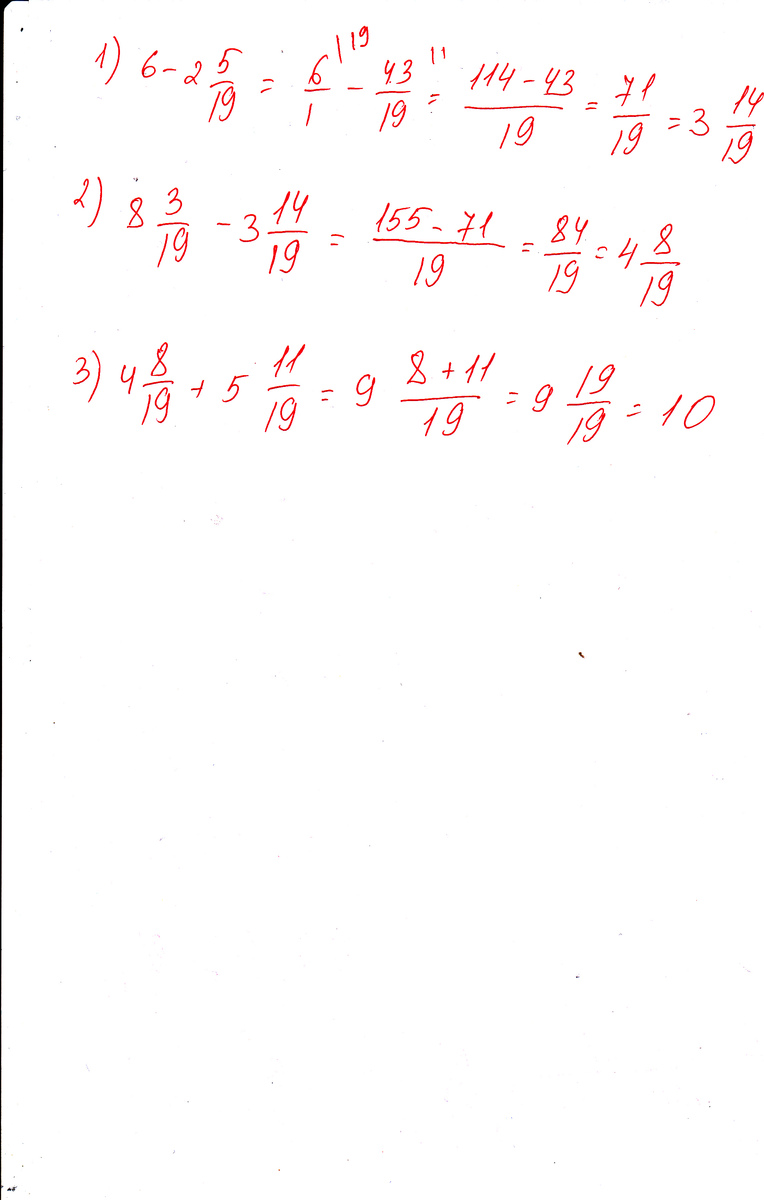 1) 6 - 2 5/19 = 6/1 |19 - 43/19 11 = 114 - 43/19 = 71/19 = 3 14/19
2) 8 3/19 - 3 14/19 = 155 - 71/19 = 84/19 = 4 8/19
3) 4 8/19 + 5 11/19 = 9 8 + 11/19 = 9 19/19 = 10